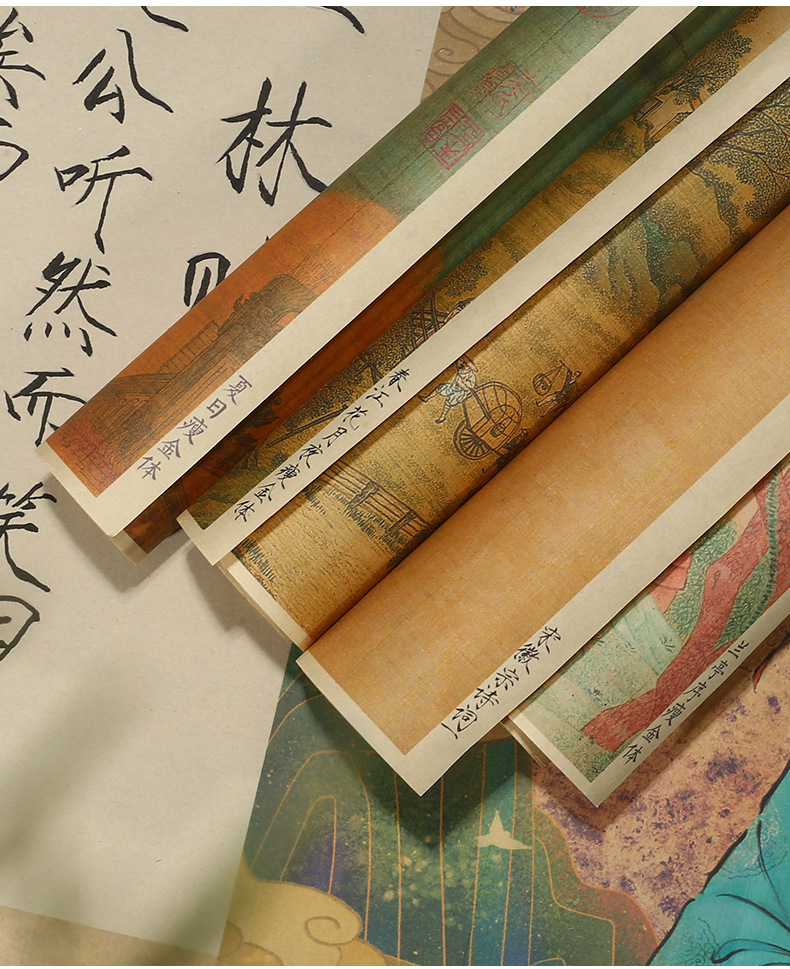 林
公听然而笑曰
夏日瘦金体
春江花月夜瘦金体
宋徽宗诗词一
兰亭序瘦金体